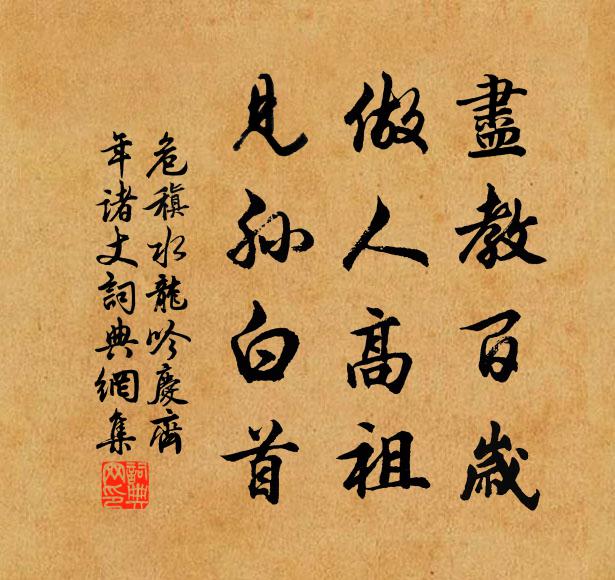 盡教百歲
做人高祖
見孫白首
危稹水龍吟慶齊
年諸丈詞典網集
詞典
网印